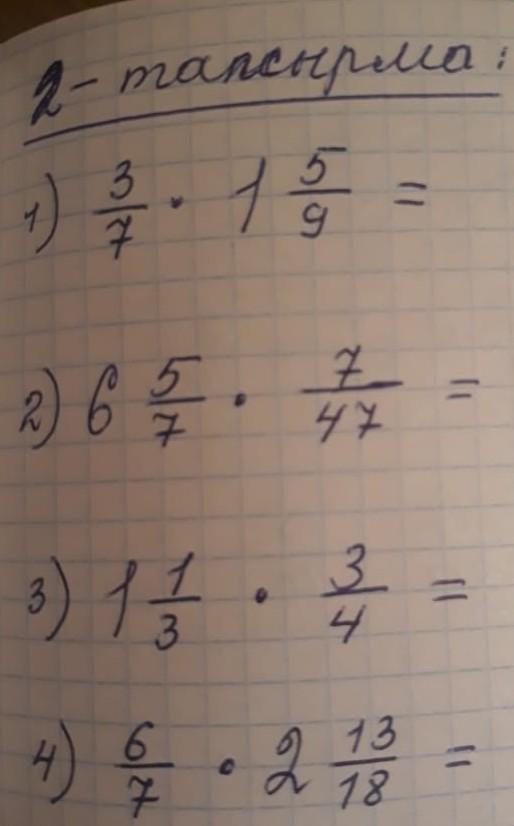 2-тапсырма:
1) 3/7 · 1 5/9 =
2) 6 5/7 · 7/47 =
3) 1 1/3 · 3/4 =
4) 6/7 · 2 13/18 =